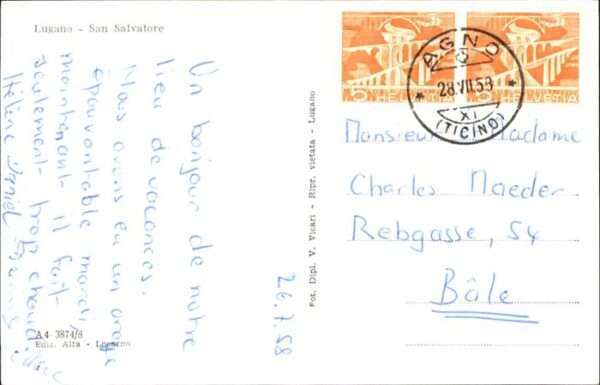 Lugano - San Salvatore
Un bonjour de notre
lieu de vacances.
Nous avons eu un orage
épouvantable mardi,
maintenant il fait
seulement trop chaud.
Hélène Daniel
26.7.58
Fot. Dipl. V. Vicari - Ripr. vietata - Lugano
A4-3874/8
Ediz. Alta - Lugano
5 HELVETIA
5 HELVETIA
AGNO
28.VII.58
XI
(TICINO)
Monsieur Madame
Charles Maeder
Rebgasse, 54
Bâle